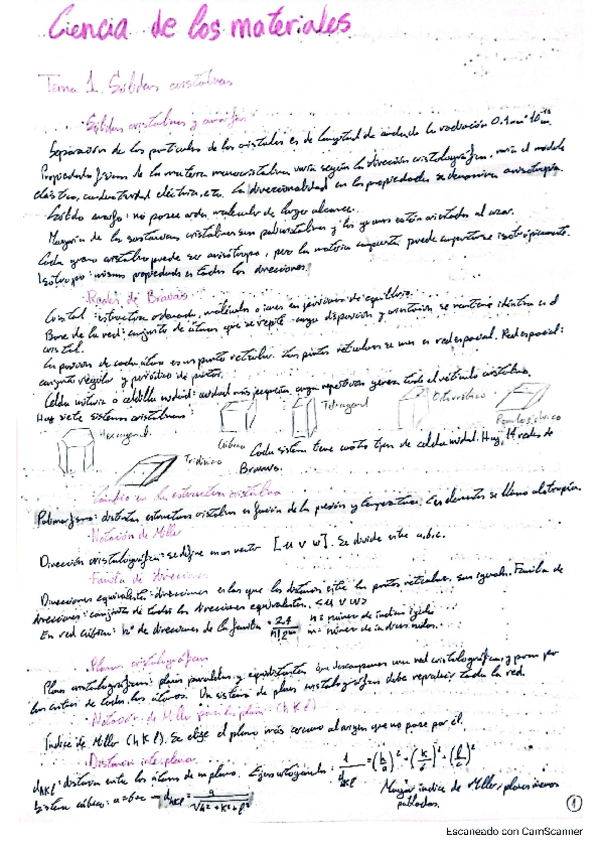 Ciencia de los materiales
Tema 1. Sólidos cristalinos
Sólidos cristalinos y amorfos
Separación de las partículas de los cristales es de longitud de onda de la radiación 0.1nm 10⁻¹⁰m.
Propiedades físicas de la materia monocristalina varía según la dirección cristalográfica, varía el módulo
elástico, conductividad eléctrica, etc. La direccionalidad en las propiedades se denomina anisotropía.
Sólido amorfo: no posee orden molecular de largo alcance.
Mayoría de las sustancias cristalinas son policristalinas y los granos están orientados al azar.
Cada grano cristalino puede ser anisótropo, pero la materia compuesta puede comportarse isotrópicamente.
Isótropo: mismas propiedades en todas las direcciones.
Redes de Bravais
Cristal: estructura ordenada, moléculas o iones en posiciones de equilibrio.
Base de la red: conjunto de átomos que se repite cuya disposición y orientación se mantiene idéntica en el
cristal.
La posición de cada átomo es un punto reticular. Los puntos reticulares se unen es red espacial. Red espacial:
conjunto regular y periódico de puntos.
Celda unitaria o celdilla unidad: unidad más pequeña cuya repetición genera todo el retículo cristalino.
Hay siete sistemas cristalinos:
Tetragonal
Ortorrómbico
Hexagonal
Cúbico
Triclínico
Cada sistema tiene varios tipos de celda unidad. Hay 14 redes de
Bravais.
Cambio en la estructura cristalina
Polimorfismo: distintas estructuras cristalinas en función de la presión y temperatura. Los elementos se llama alotropía.
Notación de Miller
Dirección cristalográfica: se define en un vector [u v w]. Se divide entre a, b, c.
Familia de direcciones
Direcciones equivalentes: direcciones en las que las distancias entre los puntos reticulares son iguales. Familia de
direcciones: conjunto de todas las direcciones equivalentes. <u v w>
En red cúbica: nº de direcciones de la familia = 24/n!2^m n = número de índices iguales
m = número de índices nulos.
Planos cristalográficos
Planos cristalográficos: planos paralelos y equidistantes que descomponen una red cristalográfica y pasan por
los centros de todos los átomos. Un sistema de planos cristalográficos debe reproducir toda la red.
Notación de Miller para los planos (h k l)
Índice de Miller (h k l). Se elige el plano más cercano al origen que no pase por él.
Distancia interplanar
d_hkl: distancia entre los átomos de un plano. Ejes ortogonales: 1/d_hkl = (h/a)² + (k/b)² + (l/c)²
Sistema cúbico: a=b=c → d_hkl = a/√h²+k²+l² Mayor índice de Miller, planos menos
poblados.
1
Escaneado con CamScanner